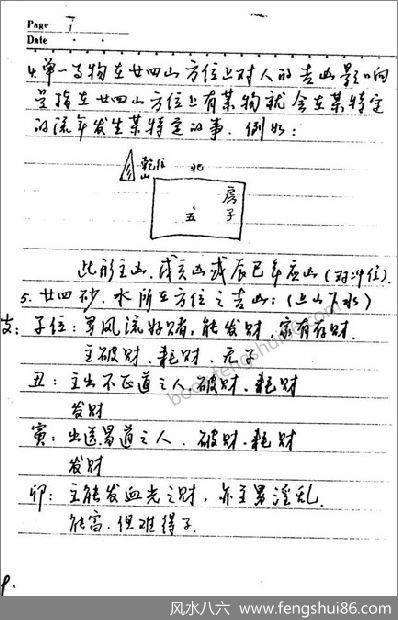 Page 7
Date
4.单一事物在廿四山方位上对人的吉凶影响
是指在廿四山方位上有某物就会在某特定
的流年发生某特定的事. 例如:
乾位 北
山
房子
五
此形主凶.戌亥凶或辰巳年应凶(对冲位)
5. 廿四砂.水所在方位之吉凶:(上山下水)
支: 子位:男风流好赌,能发财,家有存财.
主破财.耗财.无子
丑: 主出不正道之人.破财.耗财
发财
寅: 出送易道之人. 破财.耗财
发财
卯: 主能发血光之财, 亦主男淫乱.
能富.但难得子.
book.fengshui86.com
风水八六 www.fengshui86.com